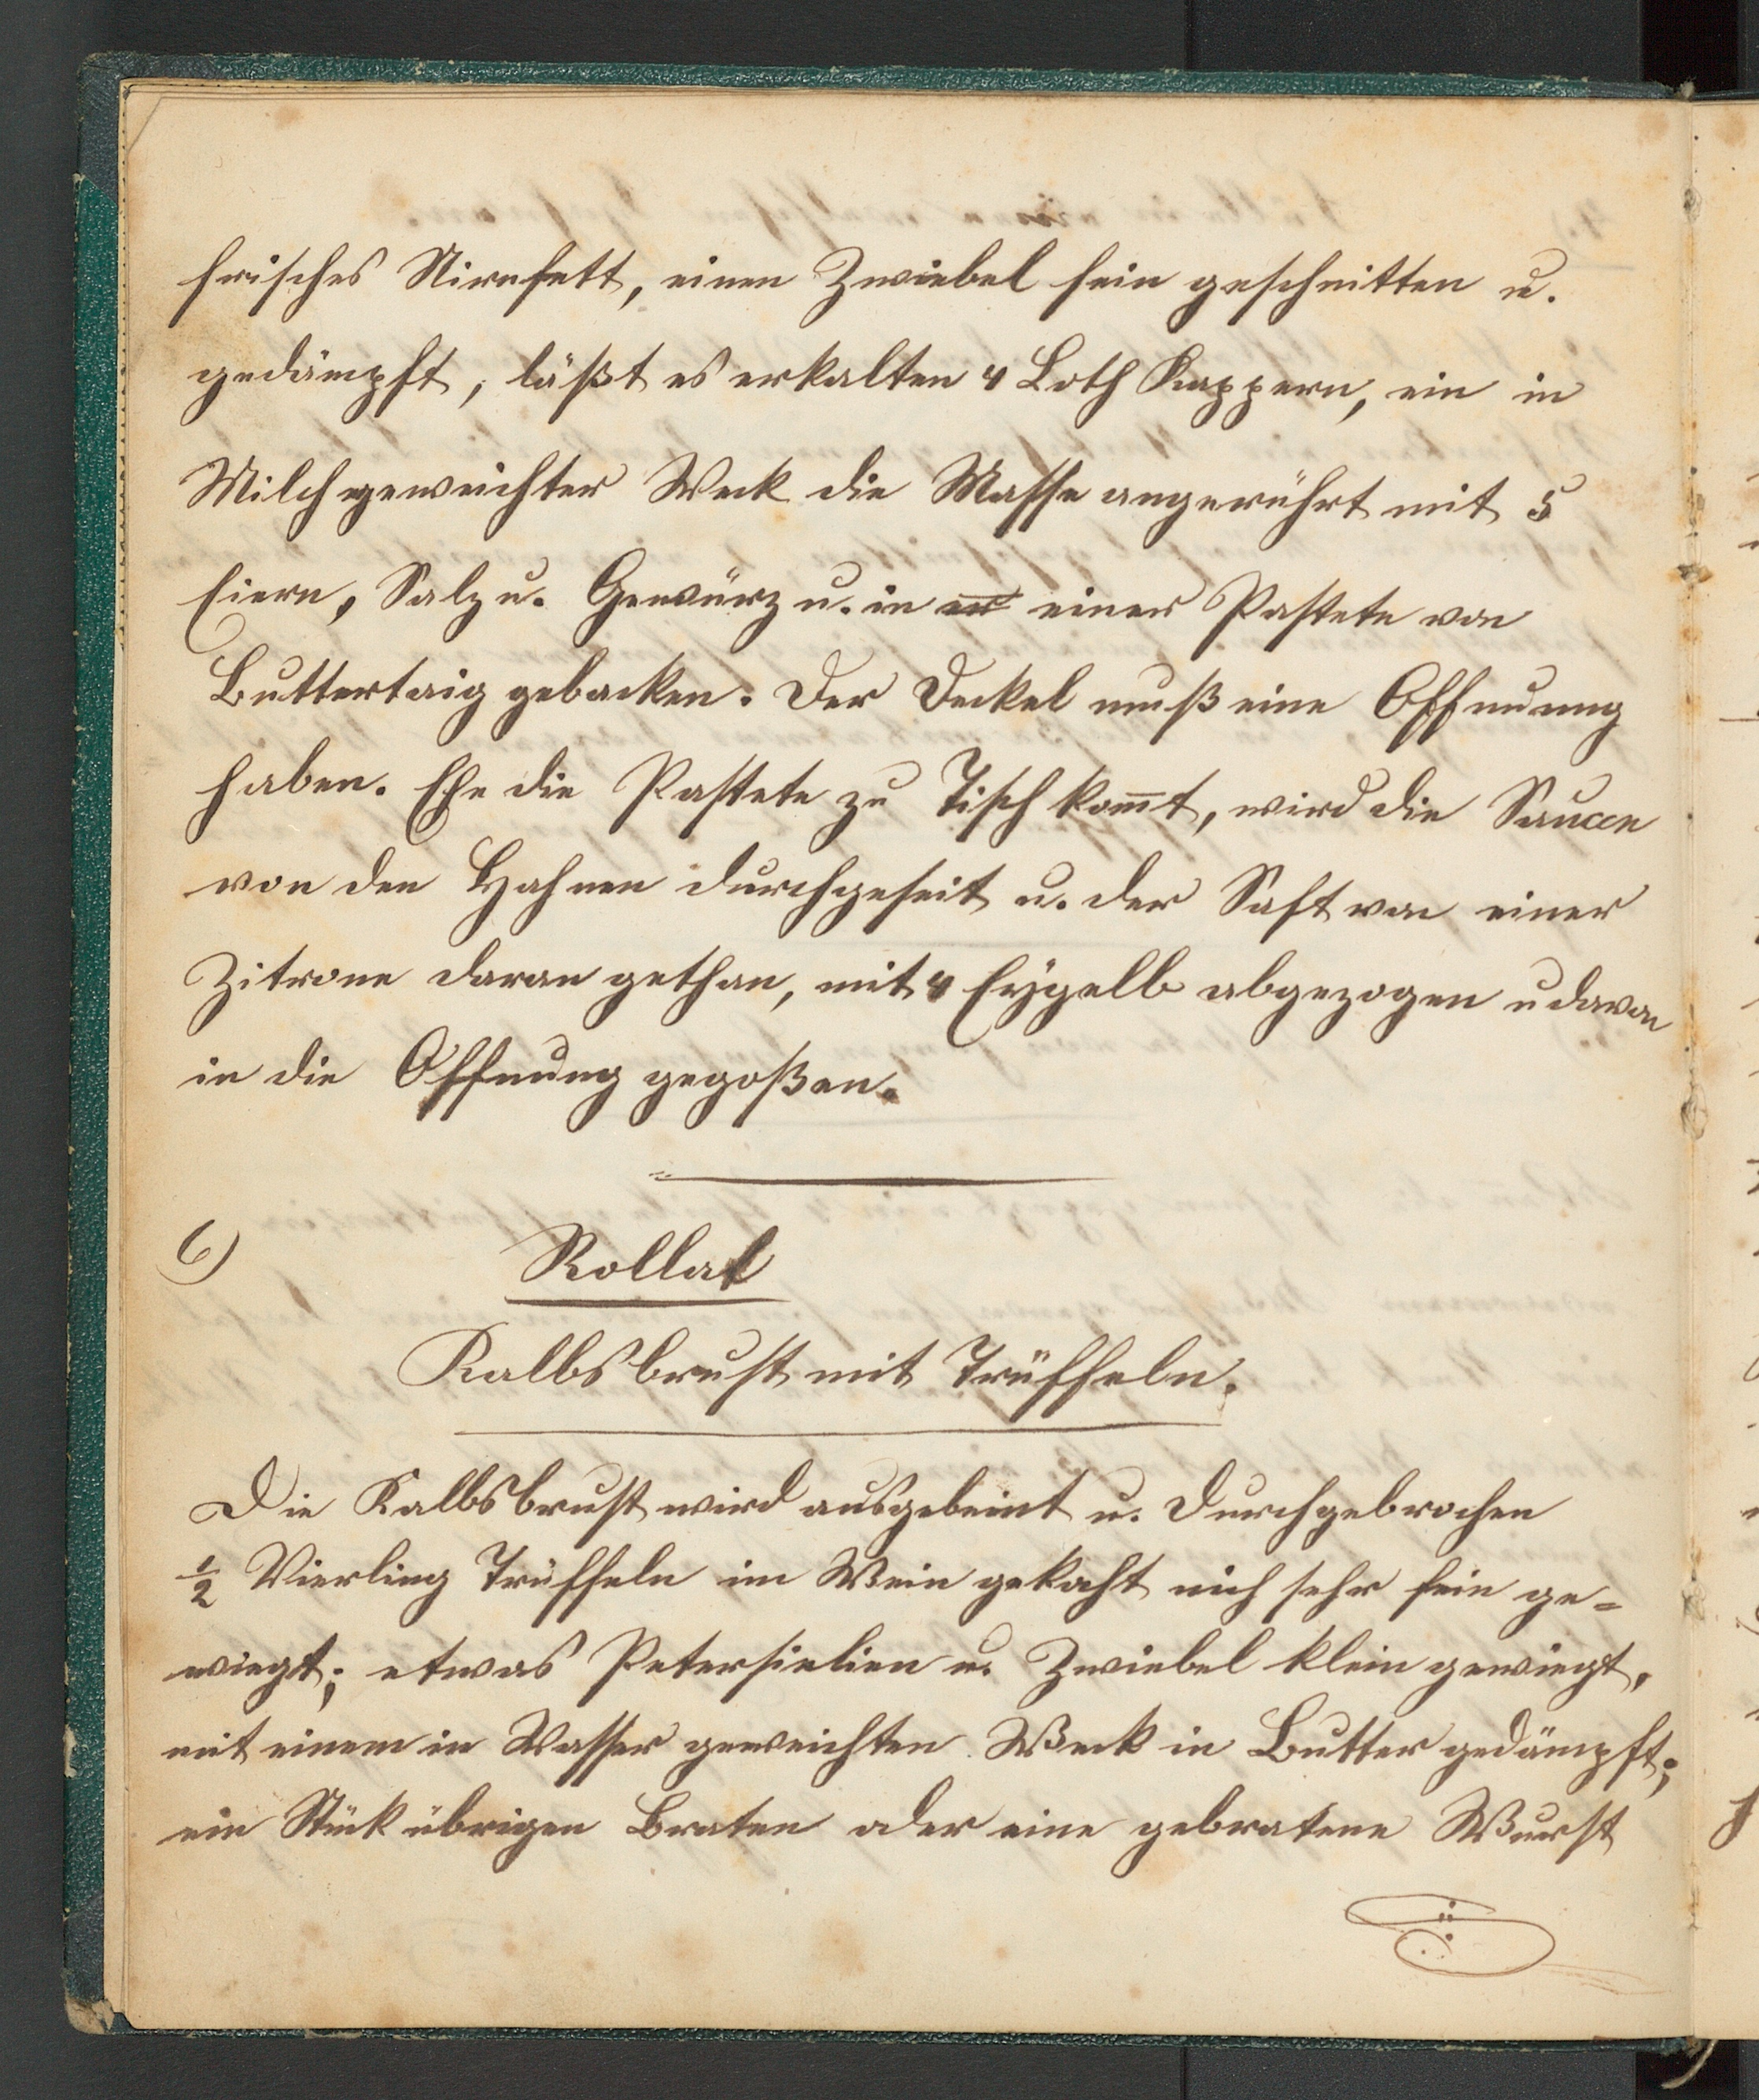 frisches Nirnfett, einen Zwiebel fein geschnitten u.
gedämpft, läßt es erkalten 4 Loth Kappern, ein in
Milch geweichter Weck die Masse angerührt mit 5
Eiern, Salz u. Gewürz u. in einer Pastete von
Buttertaig gebacken. Der Deckel muß eine Offnung
haben. Ehe die Pastete zu Tisch kom̅t, wird die Saucen
von den Hahnen durchgeseit u. der Saft von einer
Zitrone daran gethan, mit 4 Eygelb abgezogen u davon
in die Offnung gegoßen.
6) Rollat
Kalbsbrust mit Trüffeln.
Die Kalbsbrust wird ausgebeint u. durchgebrochen
½ Vierling Trüffeln im Wein gekocht sehr fein ge=
wiegt; etwas Petersielien u. Zwiebel klein gewiegt,
mit einem in Wasser geweichten Weck in Butter gedämpft;
ein Stük übrigen Braten oder eine gebratene Wurst